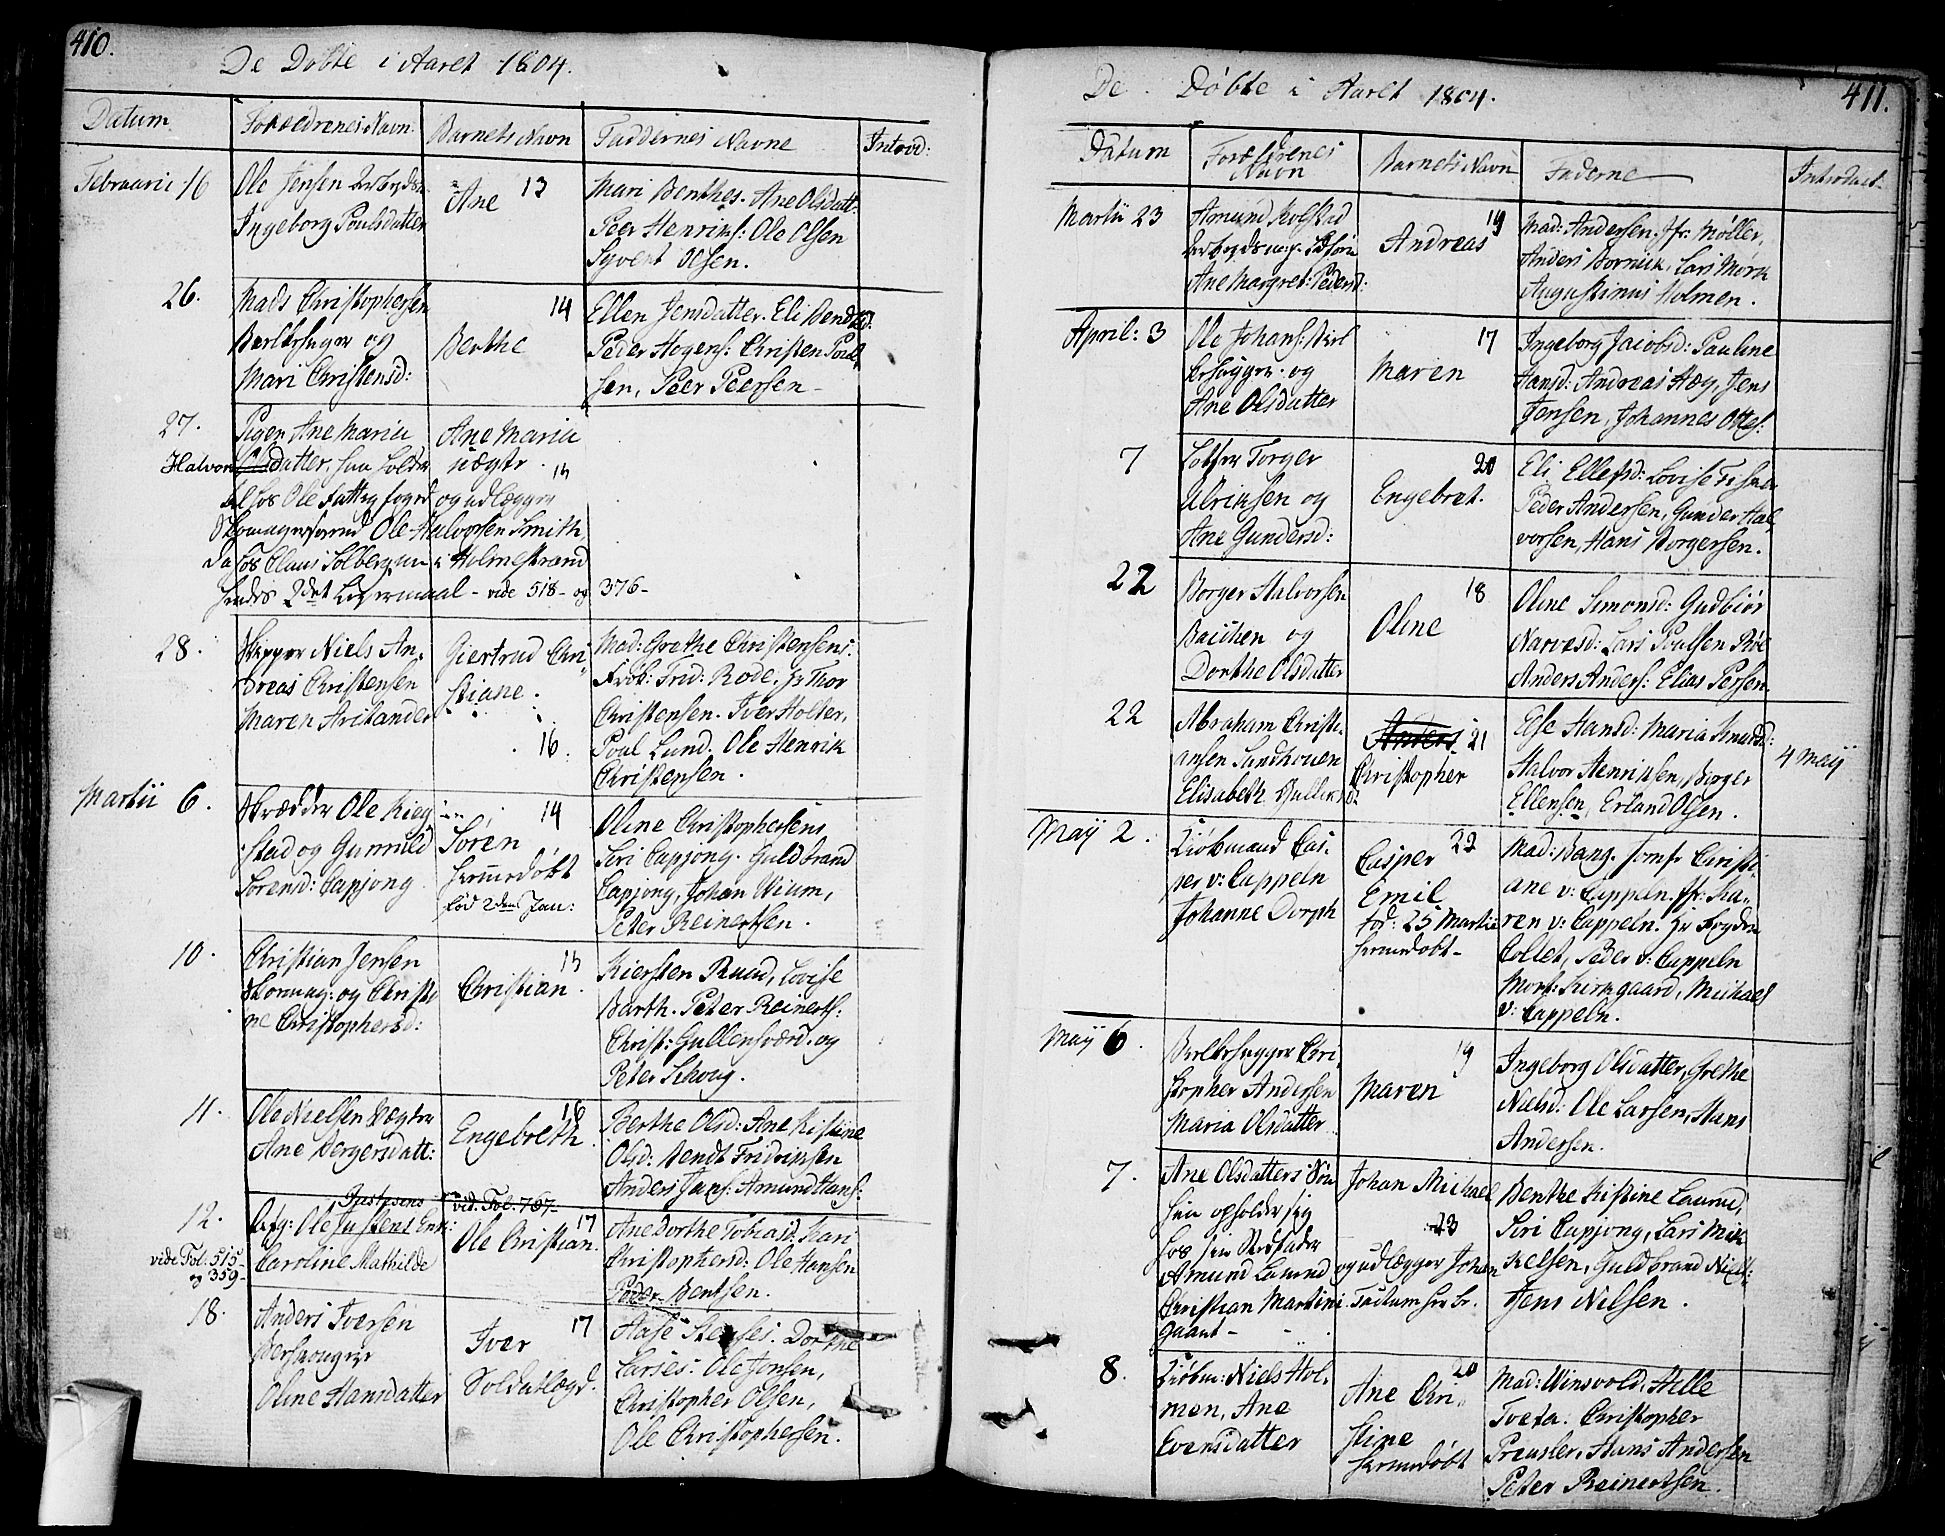 410.
De Døbte i Aaret 1804.
Datum
Forældrenes Navn.
Barnets Navn
Faddernes Navne
Introd:
Februarii 16
Ole Jensen
Ingeborg Poulsdatter
Ane 13
Mari Benthes. Ane Olsdatt:
Peer Henriks: Ole Olsen
Syvert Olsen.
26.
Mads Christophersen
og
Mari Christensd:
14
Berthe
Ellen Jensdatter. Eli
Peder Hogens: Christen Poul
sen, Peer Peersen
27.
Pigen Ane Maria
Halvors datter,
hos Ole
Ole Halvorsen Smith
hos Claus Solbergs i Holmestrand
2det Leiermaal - vide 518- og 376-
Ane Maria
og udlægger
28.
Skipper Niels An-
dreas Christensen
Maren Arctander
Giertrud Chri
stiane.
16.
Mad: Grethe Christensens.
Frøk: Frid: Rode. Hr Thor
Christensen. Iver Holter,
Poul Lund. Ole Henrik
Christensen.
Martii 6.
Skrædder Ole Kieg
stad og Gunnild
Sørensd: Capjong
14
Søren
hiemedøbt
fød 2den Jan:
Oline Christophersens
Siri Capjong. Guldbrand
Capjong, Johan Wium,
Peter Reinertsen.
10.
Christian Jensen
Skomag: og Christi
ne Christophersd:
15
Christian.
Kiersten Ruud, Lovise
Barth. Peter Reinerts:
Christ: Gullensværd. og
Peter Schoug.
11.
Ole Nielsen Vægter
Ane Bergersdatt:
16
Engebreth.
Berthe Olsd: Ane Kistine
Olsd: Bendt Fridrinsen
Anders Jans: Amund Hans:
12.
vide Fol: 515-
og 359-
Justesens
Afg: Ole Justens Enk:
Caroline Mathilde
vid. Fol. 707.
17
Ole Christian.
Ane Dorthe Tobiasd: Kari
Christophersd: Ole Hansen
Peder Bentsen.
18.
Anders Iversen
Oline Hansdatter
17
Iver
Soldatlægd.
Aase Stenses. Dorthe
Larses: Ole Jonsen,
Christopher Olsen,
Ole Christophersen.
411.
De Døbte i Aaret 1804.
Datum
Forældrenes
Navn
Barnets Navn
Fadderne
Introduct.
Martii 23
Amund Kolstad
Ane Margret: Pedersd:
19
Andreas
Mad: Andersen. Jfr: Møller,
Anders Bornick, Lars Mørk
Augustinus Holmen.
April: 3
Ole Johans:
og
Ane Olsdatter
17
Maren
Ingeborg Jacobsd: Pauline
Hansd: Andreas Aag, Jens
Jensen, Johannes Ottes:
7
Torger
Ulriksen og
Ane Gundersd:
20
Engebret.
Eli Ellefsd: Lovise
Peder Andersen, Gunder Hal
vorsen, Hans Borgersen.
22
Borger Halvorsen
Bakken og
Dorthe Olsdatter
18
Oline
Oline Simonsd: Gudbiør
Narvesd: Lars Poulsen Røe
Anders Anders: Elias Persen.
22
Abraham Christi
ansen Sandhouen
Elisabeth
Anders. 21
Christopher
Else Hansd: Maria
Halvor Henriksen, Borger
Ellensen, Erland Olsen.
4 Maÿ
Maÿ 2.
Kiøbmand Cas-
per v: Cappeln
Johanne Dorph
22
Casper
Emil
fød: 25 Martii
hiemedøbt-
Mad: Bang. Jomfr Christi
ane v: Cappeln. Jfr: Ka-
ren v: Cappeln. Hr Fogden
Collet, Peder v: Cappeln
Mons: Kirkgaard, Michael
v: Cappeln.
Maÿ 6.
Chri
stopher Andersen
Maria Olsdatter
19
Maren
Ingeborg Olsdatter, Grethe
Nielsd: Ole Larsen, Hans
Andersen.
7.
Ane Olsdatters Søn
hun opholder sig
hos sin Stedfader
Amund Laurud og udlægger Johan
Christian Martini
Gaard-
Johan Michael
23
Benthe Kistine Laurud,
Siri Capjong, Lars Mik
kelsen, Guldbrand Niels:
Jens Nilsen.
8.
Kiøbm: Niels Hol-
men, Ane
Evensdatter
20
Ane Chri-
stine
hiemedøbt
Mad: Winsvold, Helle
Tveta. Christopher
Preusler, Hans Andersen
Peter Reinertsen.